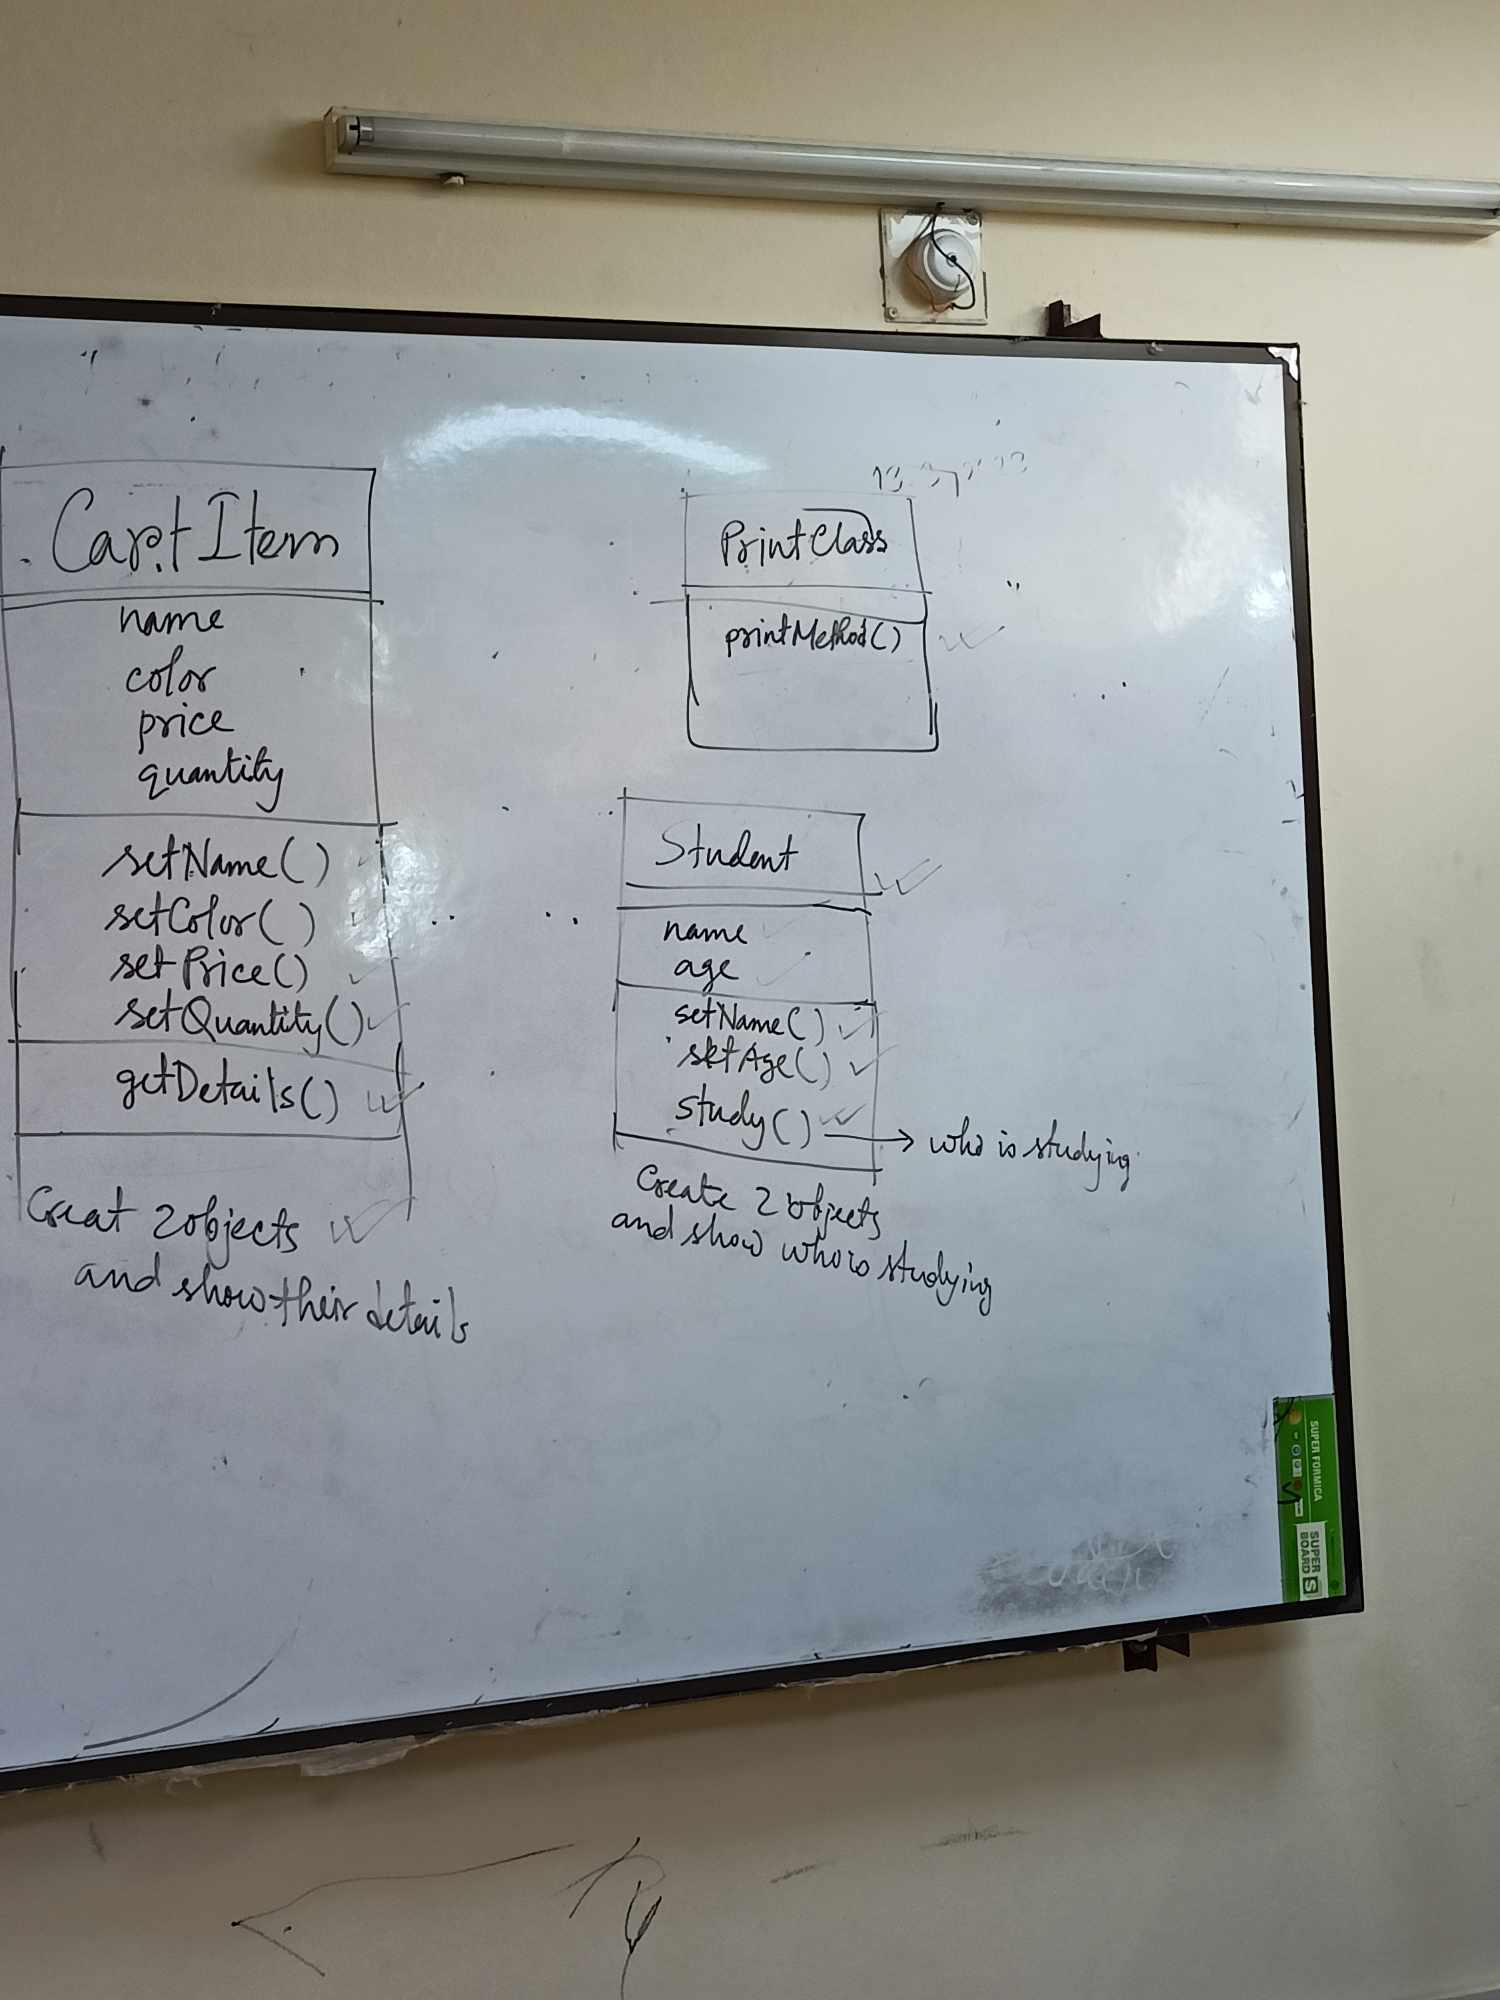 CartItem
name
color
price
quantity
setName()
setColor()
setPrice()
setQuantity()
getDetails()
Creat 2 objects
and show their details
PrintClass
printMethod()
Student
name
age
setName()
setAge()
study() → who is studying
Create 2 objects
and show who is studying
SUPER FORMICA
SUPER
BOARD S